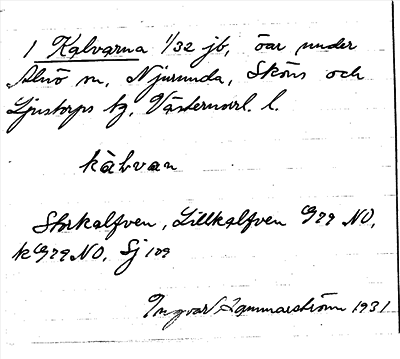 1 Kalvarna 1/32 jb, öar under
Alnö sn, Njurunda, Sköns och
Ljustorps tg, Västernorrl. l.
kàlvan
Storkalfven, Lillkalfven G79 NO,
k G79 NO, Sj 109
Ingvar Hammarström 1931